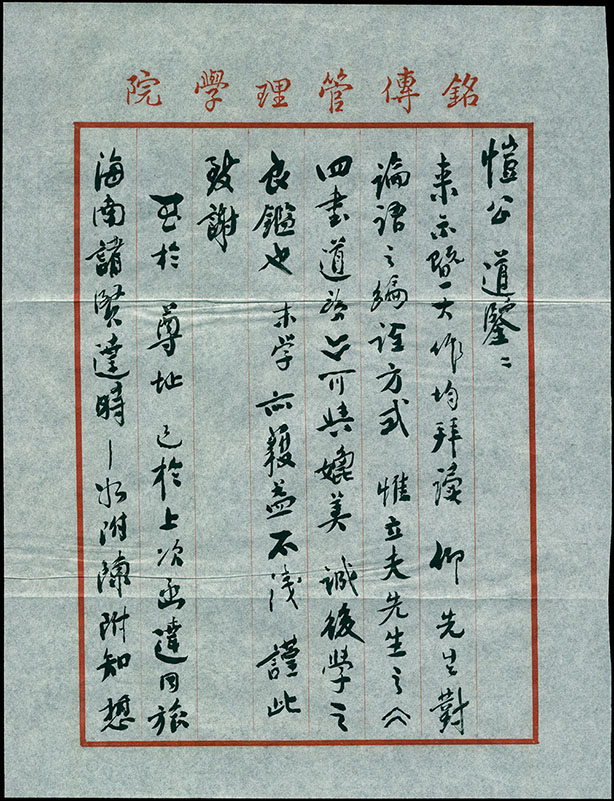 銘傳管理學院
愷公 道鑒：
來示暨大作均拜讀 仰 先生對
論語之編詮方式 惟立夫先生之《
四書道貫》可與媲美 誠後學之
良鑑也 末学亦獲益不淺 謹此
致謝
至於 尊址 已於上次函達同旅
海南諸賢達時一并附陳附知 想